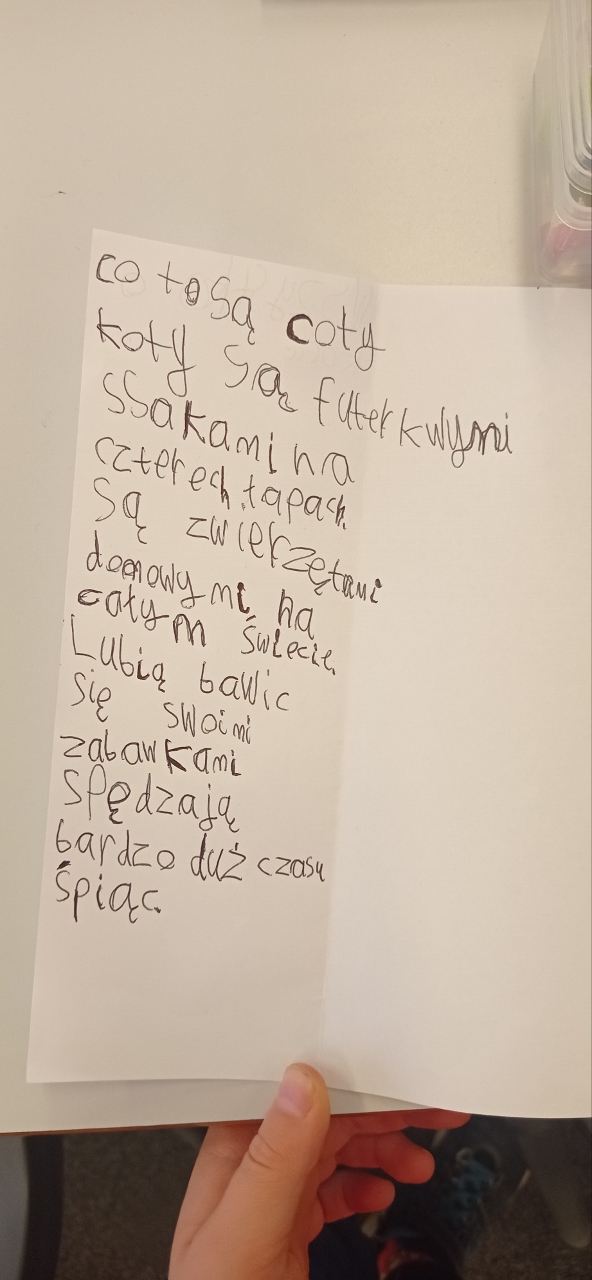 co to są coty
koty są futerkwymi
ssakami na
czterech łapach.
są zwierzętami
domowymi na
całym świecie.
Lubią bawic
się swoimi
zabawkami
spędzają
bardzo duż czasu
śpiąc.